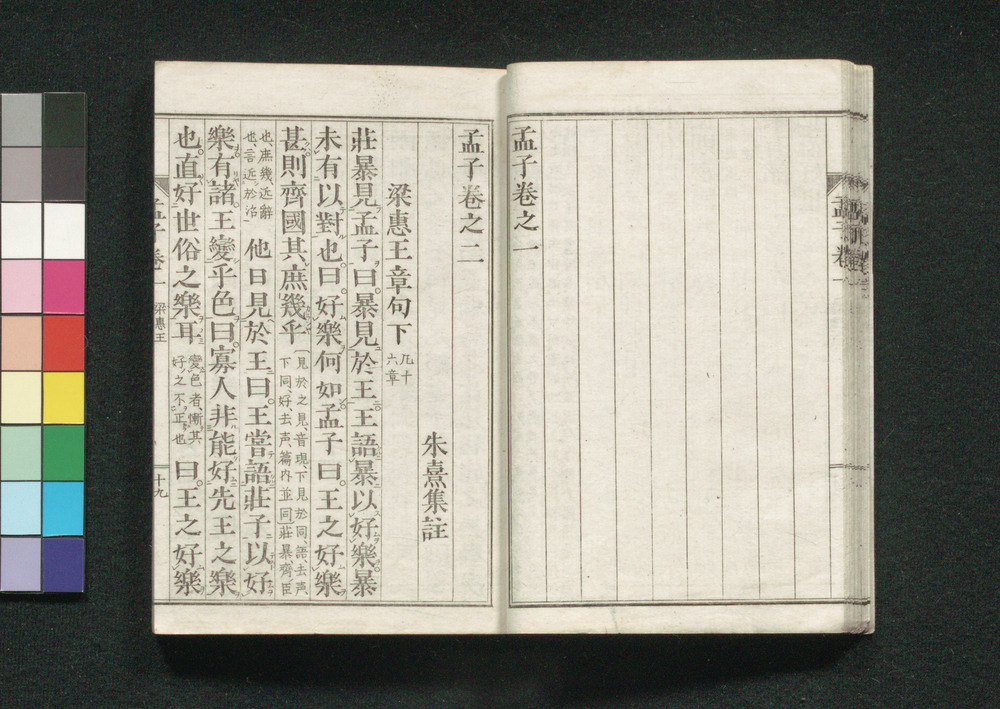 孟子卷之一
孟子卷
孟子卷之二
朱熹集註
梁惠王章句下
凡十
六章
莊暴見孟子曰。暴見於王。王語暴以好樂。暴
未有以對也。曰。好樂何如。孟子曰。王之好樂
甚。則齊國其庶幾乎
見於之見、音現、下見於同、語去声、
下同、好、去声、篇內並同、莊暴齊臣
也、庶幾、近辭
也、言近於治
他日見於王曰。王嘗語莊子以好
樂。有諸。王變乎色。曰。寡人非能好先王之樂
也。直好世俗之樂耳
變色者、慚其
好之不正也
曰。王之好樂
孟子卷一
梁惠王
十九